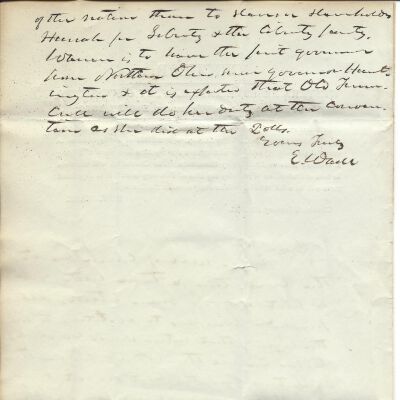 of the nation than to
Hurrah for Liberty & the Liberty party.
Warren is to have the first governor
from Northern Ohio since governor Hunt-
ington & it is expected that Old Trum-
bull will do her duty at the Conven-
tion as she did at the Polls.
Yours Truly
E. Wade